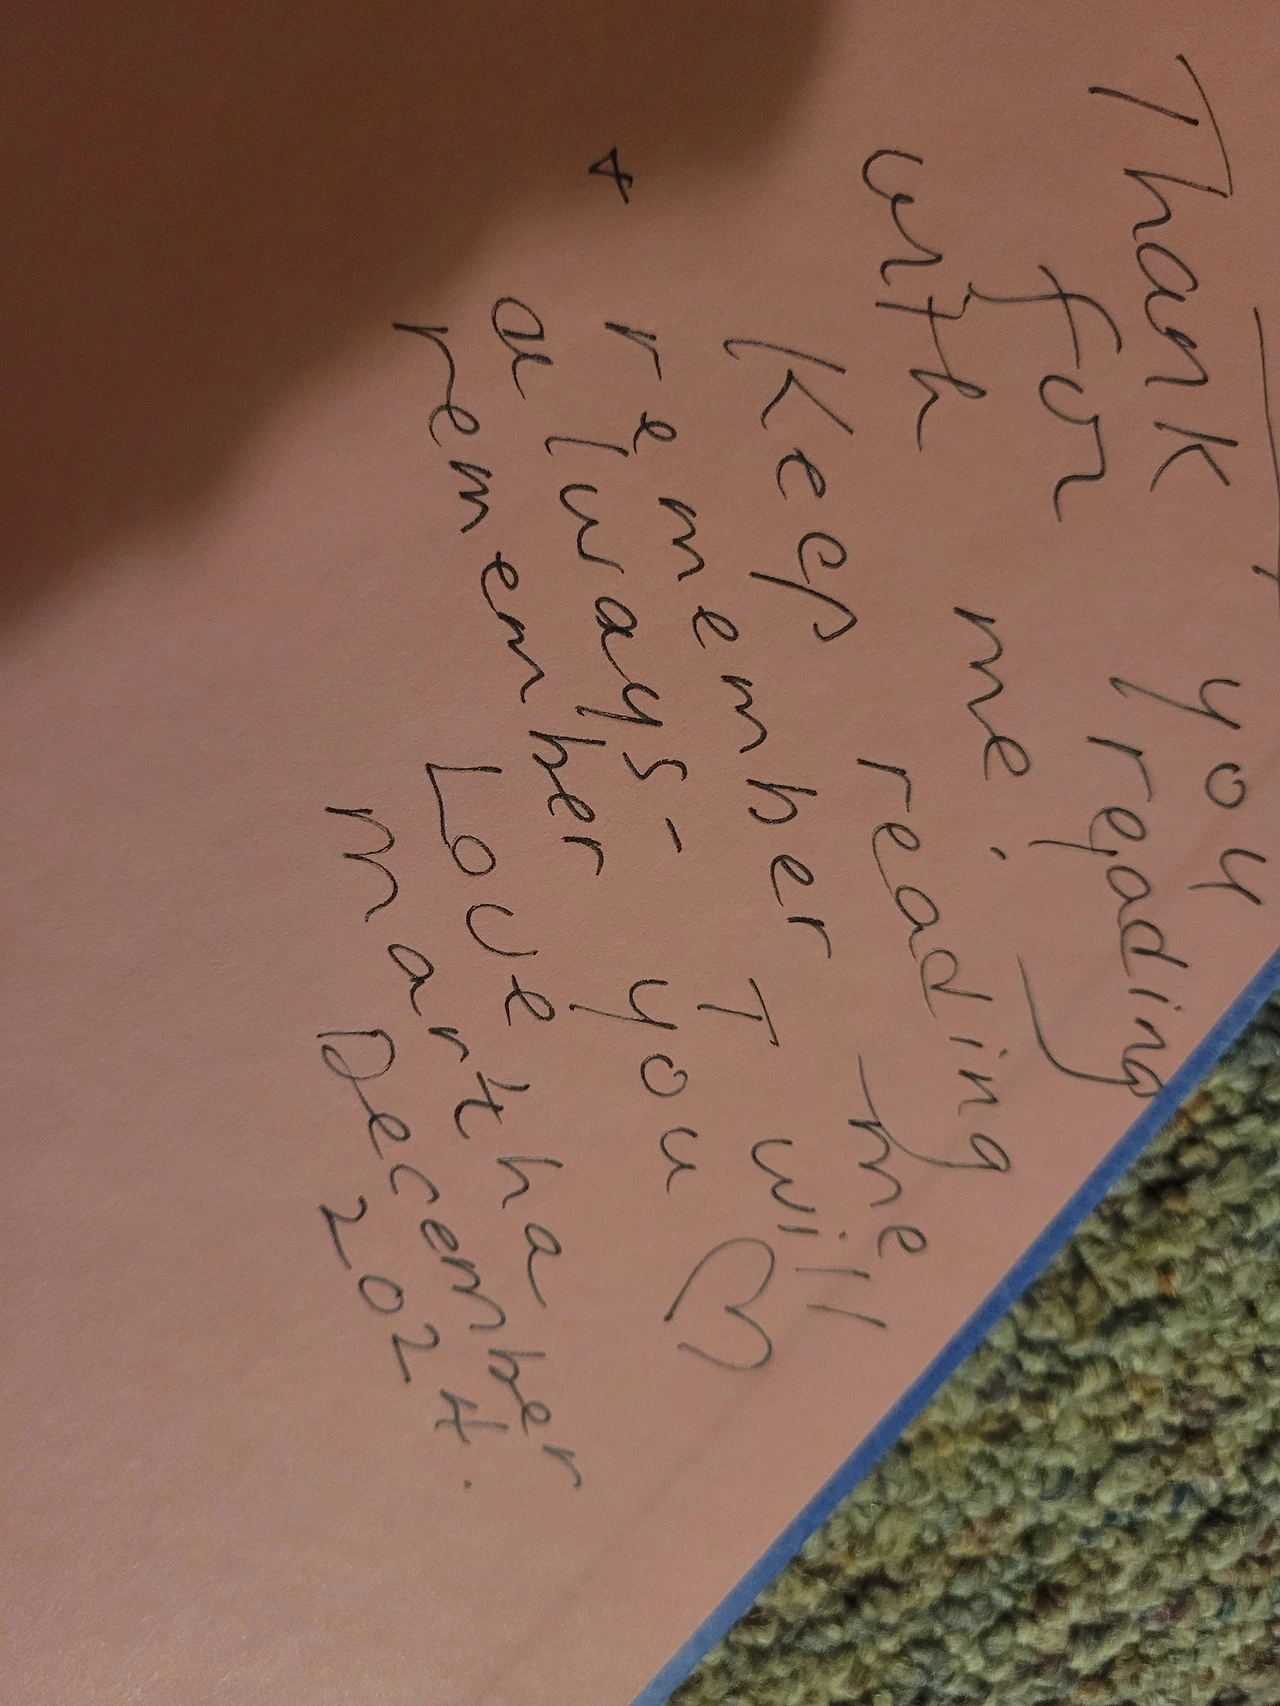 Thank you
for reading
with me.
Keep reading
remember me
& I will
always - you ♡
remember
Love
martha
December
2024.